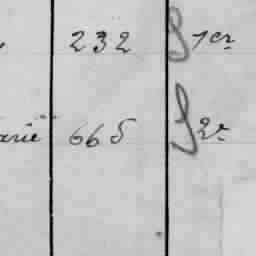 232 1er
arie 665 2e